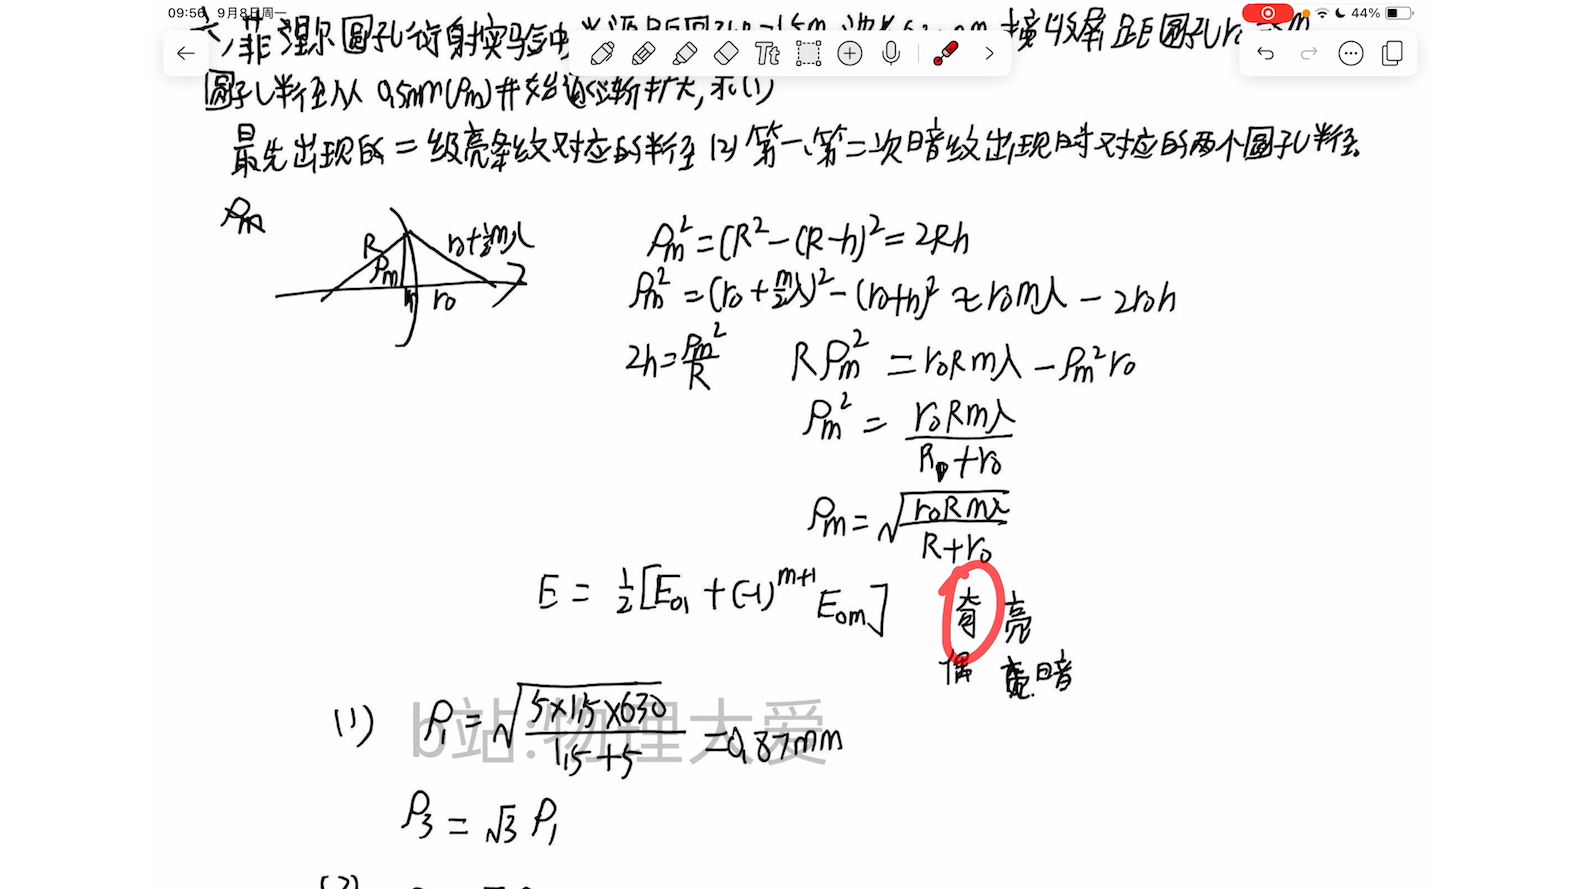 09:56 9月8日周一
44%
六、菲涅尔圆孔衍射实验中
接收屏距圆孔r₀=5m
Tt
圆孔半径从0.5mm(ρm)开始逐渐扩大,求(1)
最先出现的二级亮条纹对应的半径(2)第一、第二次暗纹出现时对应的两个圆孔半径
ρm
R r₀+½mλ
ρm
h r₀
ρm²=(R²-(R-h)²=2Rh
ρm²=(r₀+m/2λ)²-(r₀+h)²≈r₀mλ-2r₀h
2h=ρm²/R Rρm²=r₀Rmλ-ρm²r₀
ρm²=r₀Rmλ/R+r₀
ρm=√r₀Rmλ/R+r₀
E=½[E₀₁+(-1)^m+1 E₀m] 奇 亮
偶 暗
(1) ρ₁=√5×1.5×630/1.5+5=0.87mm
b站:物理大爱
ρ₃=√3 ρ₁
(2)